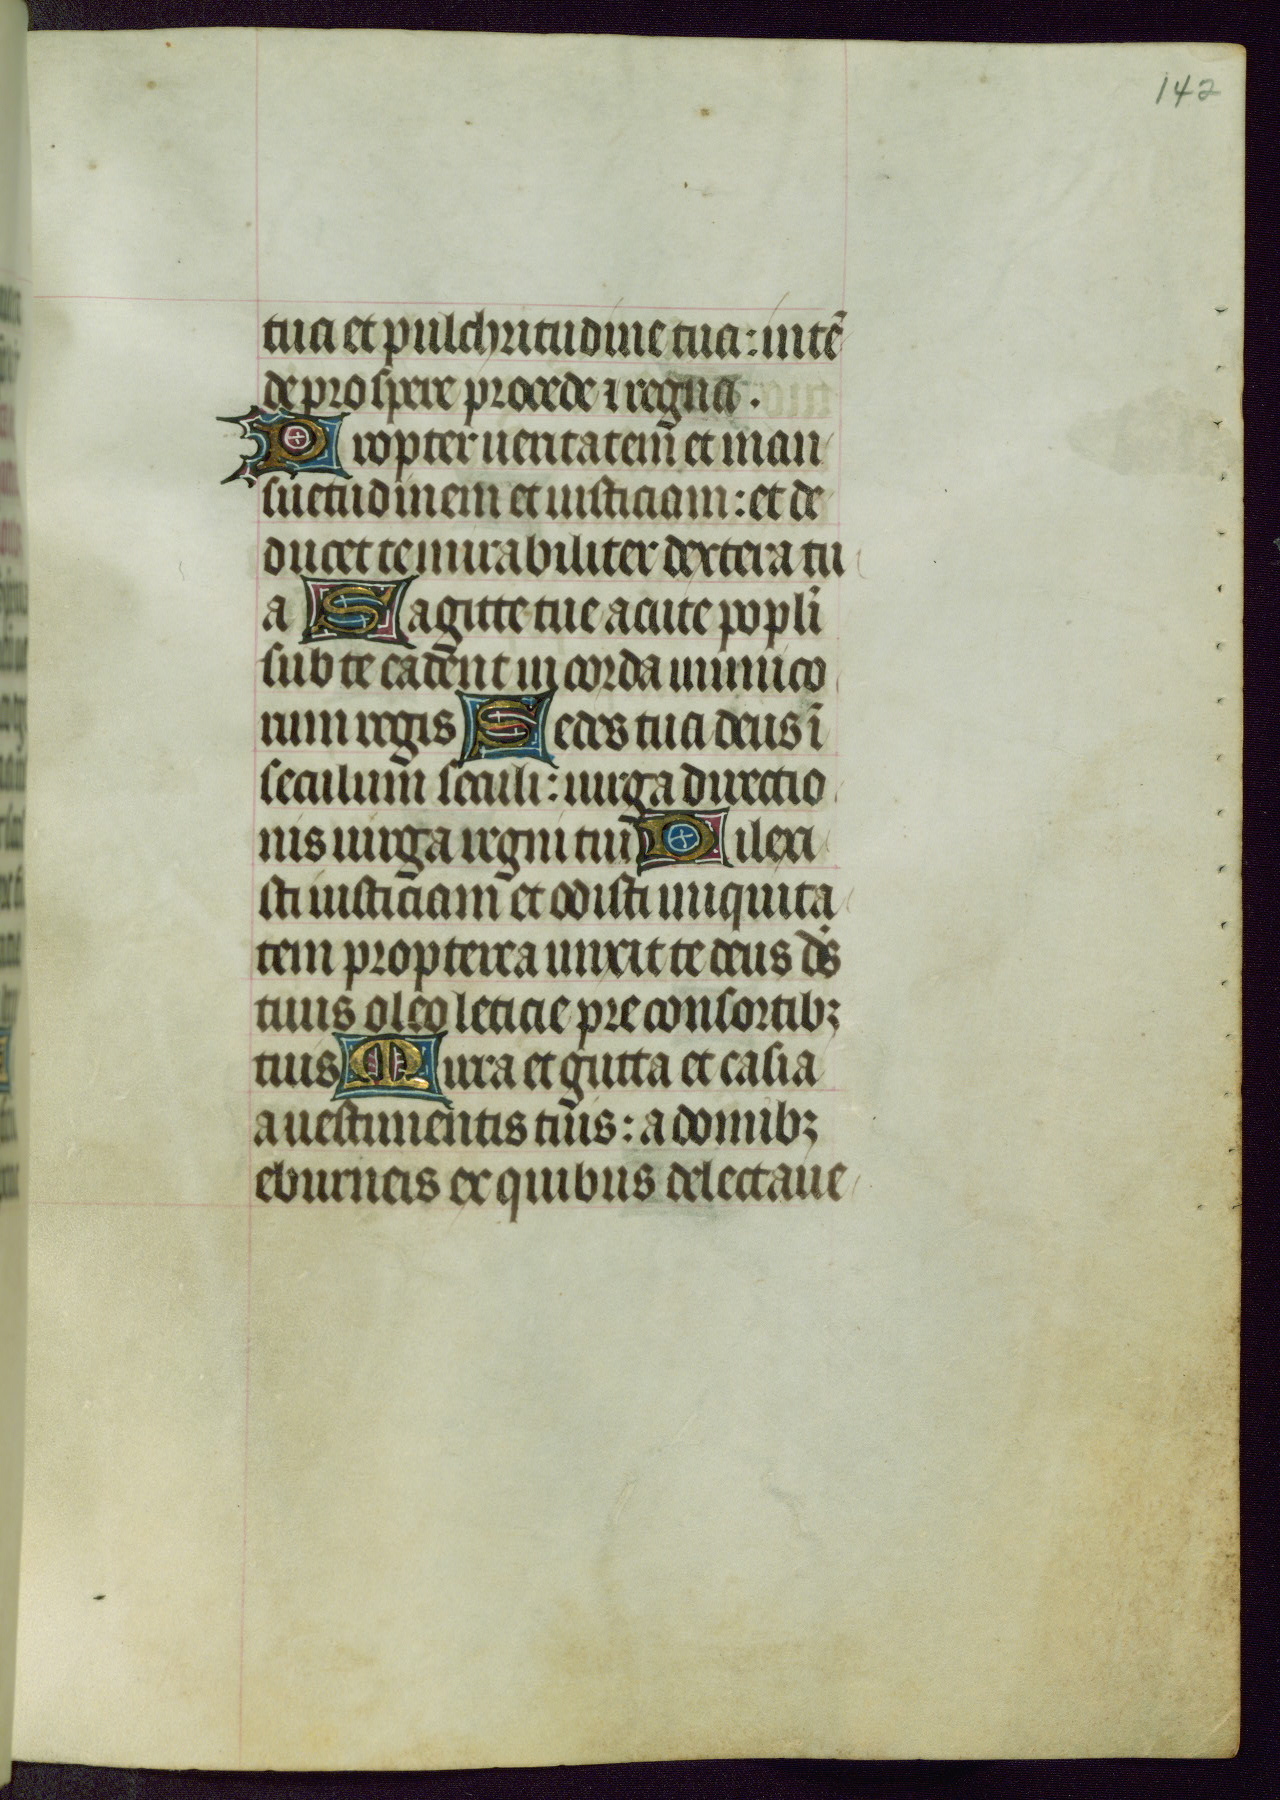 142
tua et pulchritudine tua: intē
de prospere procede ⁊ regna.
Propter ueritatem et man
suetudinem et iusticiam: et de
ducet te mirabiliter dextera tu
a Sagitte tue acute popli
sub te cadent in corda inimico
rum regis Sedes tua deus ī
seculum seculi: uirga directio
nis uirga regni tui Dilexi
sti iusticiam et odisti iniquita
tem propterea unxit te deus ds̄
tuus oleo leticie pre consortibꝫ
tuis Mirra et gutta et casia
a uestimentis tuis: a domibꝫ
eburneis ex quibus delectaue